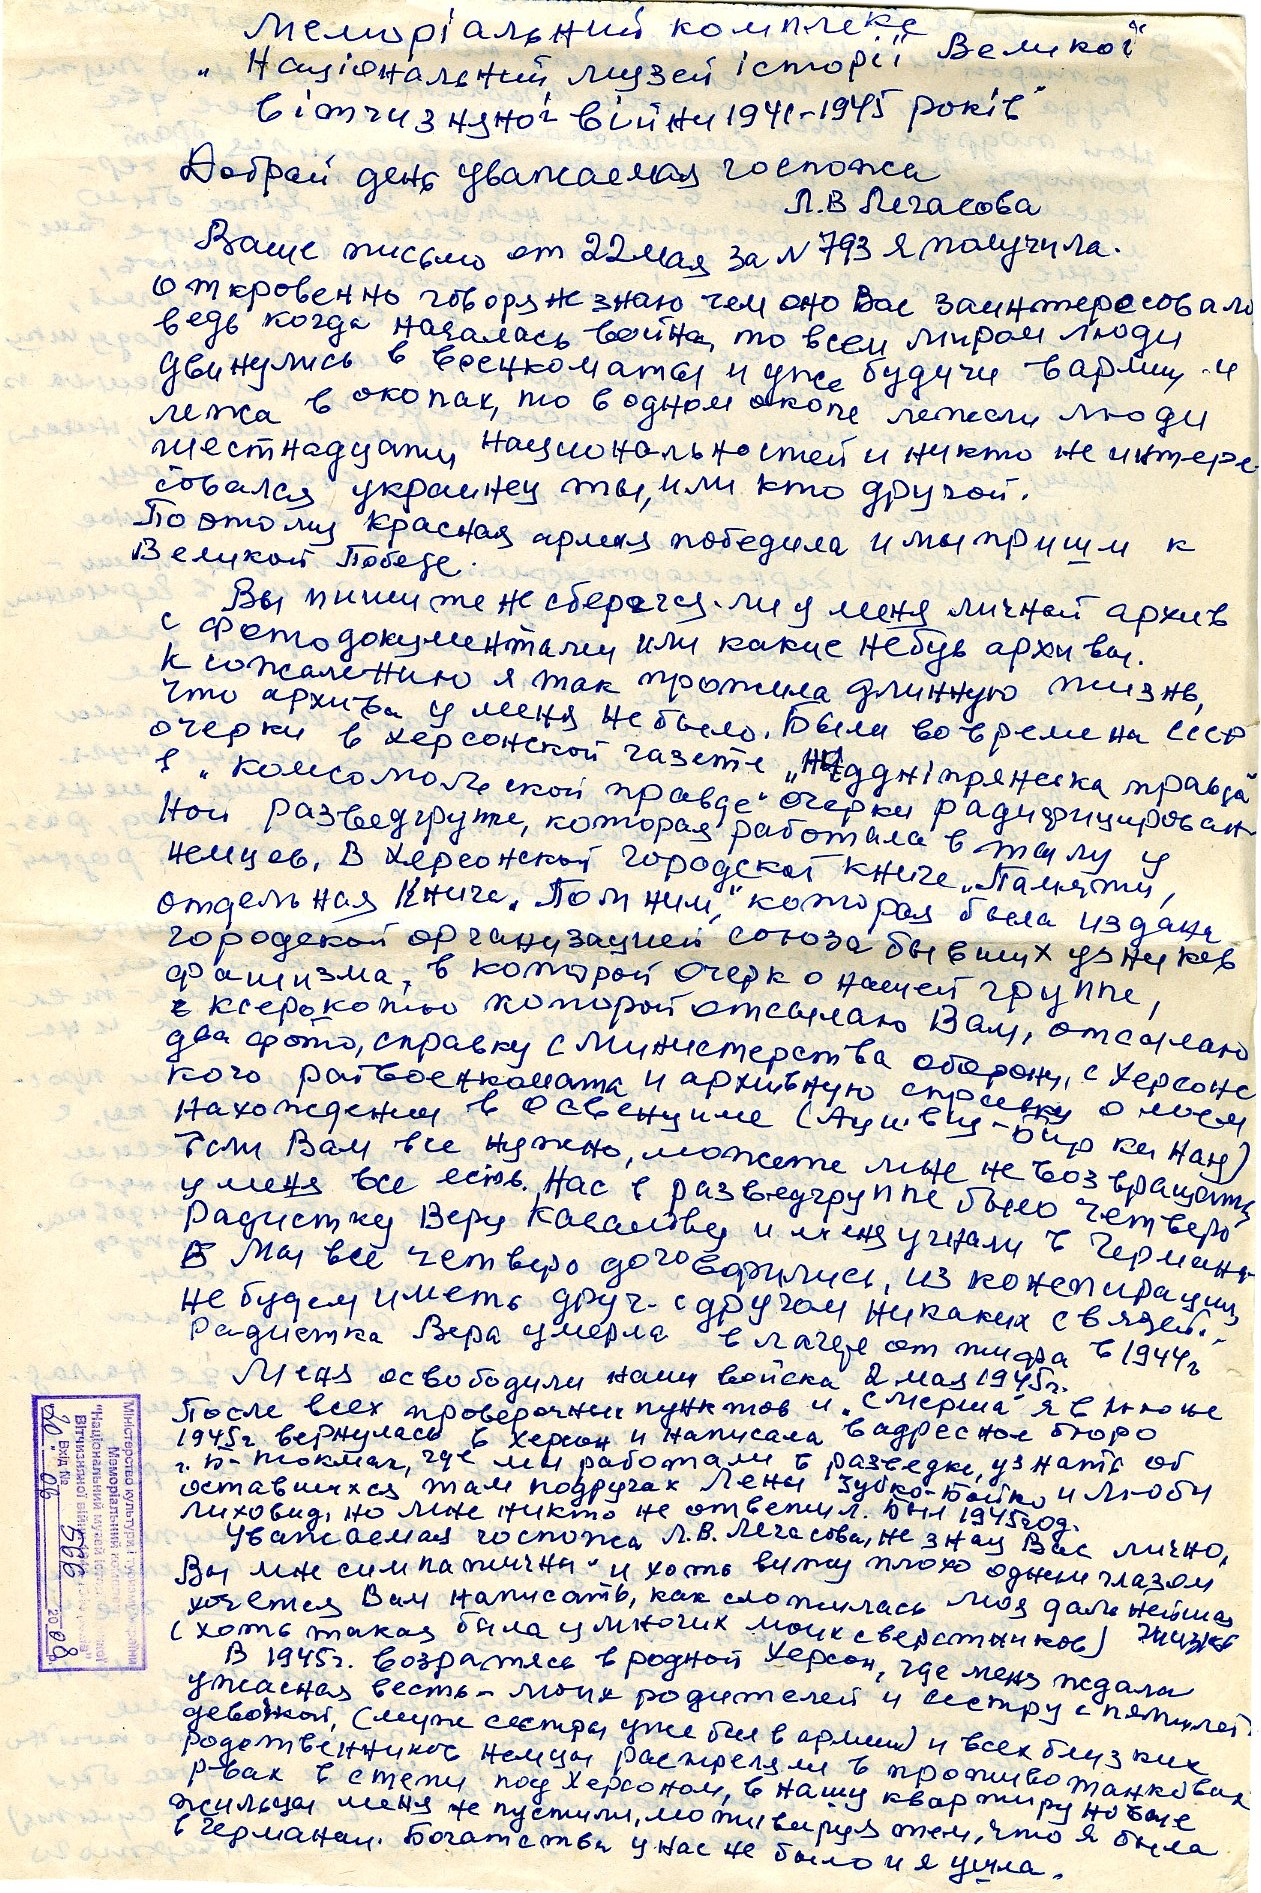 Меморіальний комплекс
„Національний музей історії Великої"
вітчизняної війни 1941-1945 років"
Добрый день уважаемая госпожа
Л.В Легасова
Ваше письмо от 22 мая за N 793 я получила.
Откровенно говоря не знаю чем оно Вас заинтересовало
ведь когда началась война, то всем миром люди
двинулись в военкоматы и уже будучи в армии и
лежа в окопах, то в одном окопе лежали люди
шестнадцати национальностей и никто не интере-
совался украинец ты, или кто другой.
Поэтому красная армия победила и мы пришли к
Великой Победе.
Вы пишите не сберегся-ли у меня личный архив
с фотодокументами или какие небудь архивы.
К сожалению я так прожила длинную жизнь,
что архива у меня не было. Были во времена СССР
очерки в Херсонской газете „Наддніпрянська правда"
в „Комсомольской правде" очерки радифицирован-
ной разведгруппе, которая работала в тылу у
немцев. В Херсонской городской книге „Памяти,
отдельная Книга „Помним," которая была издана
городской организацией союза бывших узников
фашизма, в которой очерк о нашей группе,
ксерокопию которой отсылаю Вам, отсылаю
два фото, справку с Министерства обороны, с Херсонс
кого райвоенкомата и архивную справку о моем
нахождении в Освенциме (Аушвиц-Биркенау)
Если Вам все нужно, можете мне не возвращать,
у меня все есть. Нас в разведгруппе было четверо
Радистку Веру Качалову и меня угнали в Германи
Мы все четверо договорились, из конспирации,
не будем иметь друг-с другом никаких связей.
Радистка Вера умерла в лагере от тифа в 1944г
Меня освободили наши войска 2 мая 1945г.
После всех проверочных пунктов и „Смерша" я в июне
1945г. вернулась в Херсон и написала в адресное бюро
г. Б-Токмак, где мы работали в разведке, узнать об
оставшихся там подругах Лены Зубко-Бойко и Любы
Лиховид, но мне никто не ответил. Был 1945 год.
Уважаемая госпожа Л.В. Легасова, не зная Вас лично,
Вы мне симпатичны и хоть вижу плохо одним глазом
хочется Вам написать, как сложилась моя дальнейшая
(хоть такая была у многих моих сверстников) жизнь
В 1945г. возратясь в родной Херсон, где меня ждала
ужасная весть - моих родителей и сестру с пятилет
девочкой, (муж сестры уже был в армии) и всех близких
родственников немцы растреляли в противотанковых
рвах в степи под Херсоном, в нашу квартиру новые
жильцы меня не пустили, мотивируя тем, что я была
в Германии. Богатства у нас не было и я ушла.
Міністерство культури і туризму України
Меморіальний комплекс
"Національний музей історії Великої
Вітчизняної війни 1941-1945 років"
Вхід № 566
"20" 06 2008